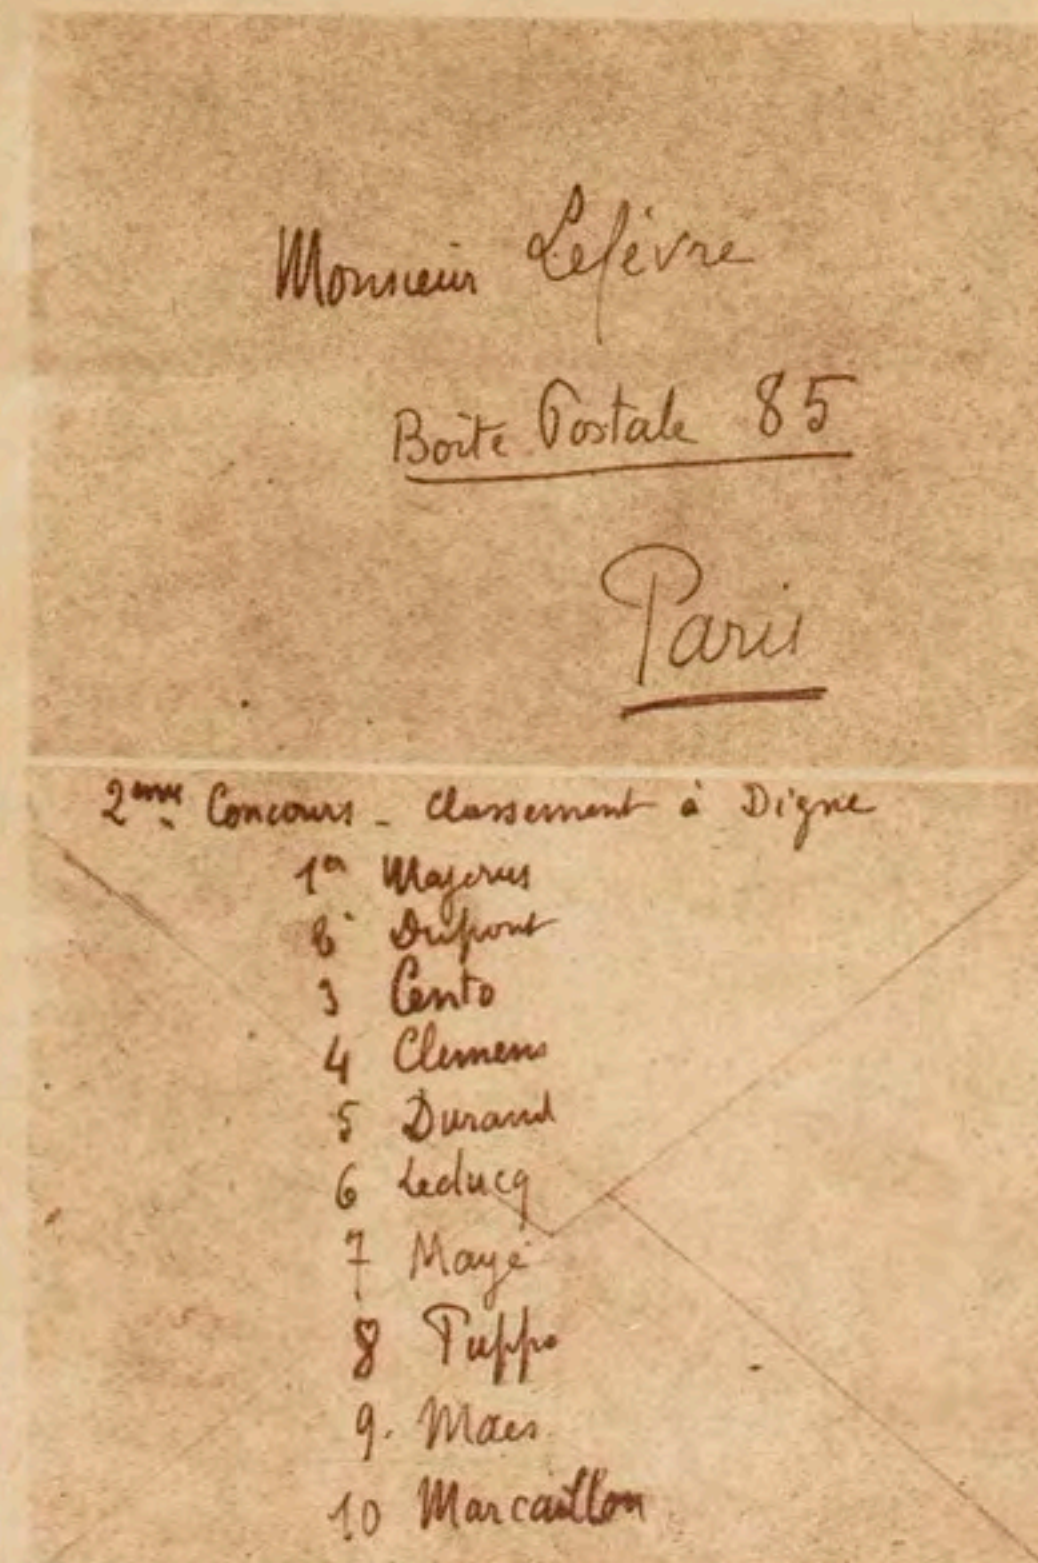 Monsieur Lefèvre
Boîte Postale 85
Paris
2ème Concours - Classement à Digne
1er Majerus
2 Dupont
3 Cento
4 Clemens
5 Durand
6 Leducq
7 Mayé
8 Puppo
9. Maes
10 Marcaillou